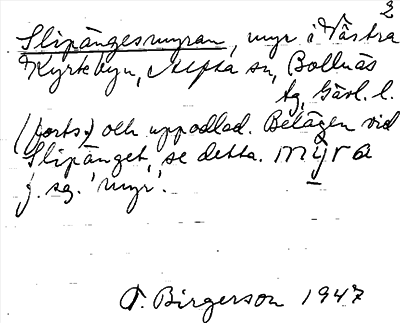 2
Slipängesmyran, myr i Västra
Kyrkbyn, Alfta sn, Bollnäs
tg, Gävl. l.
(forts.) och uppodlad. Belägen vid
Slipänget, se detta. myra
f. sg. 'myr'.
T. Birgerson 1947